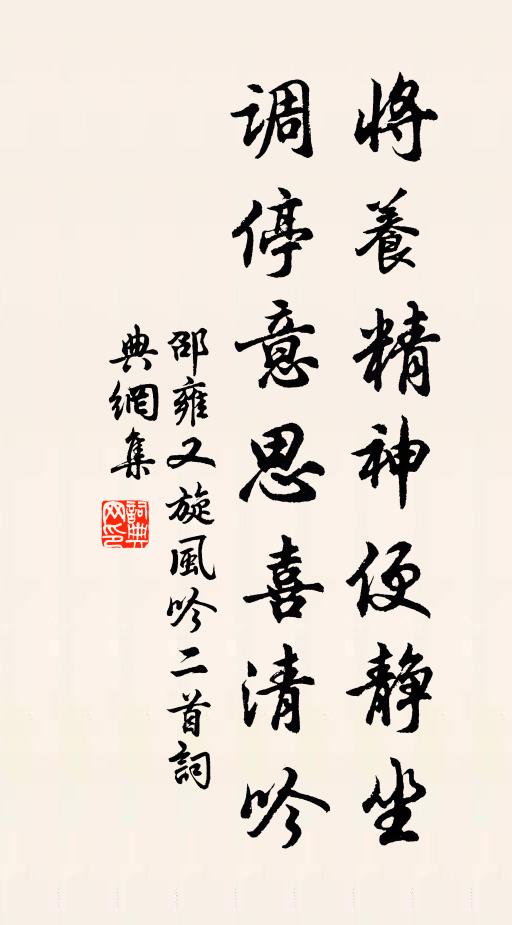 將養精神便静坐
调停意思喜清吟
邵雍又旋風吟二首詞
典網集
詞典網印